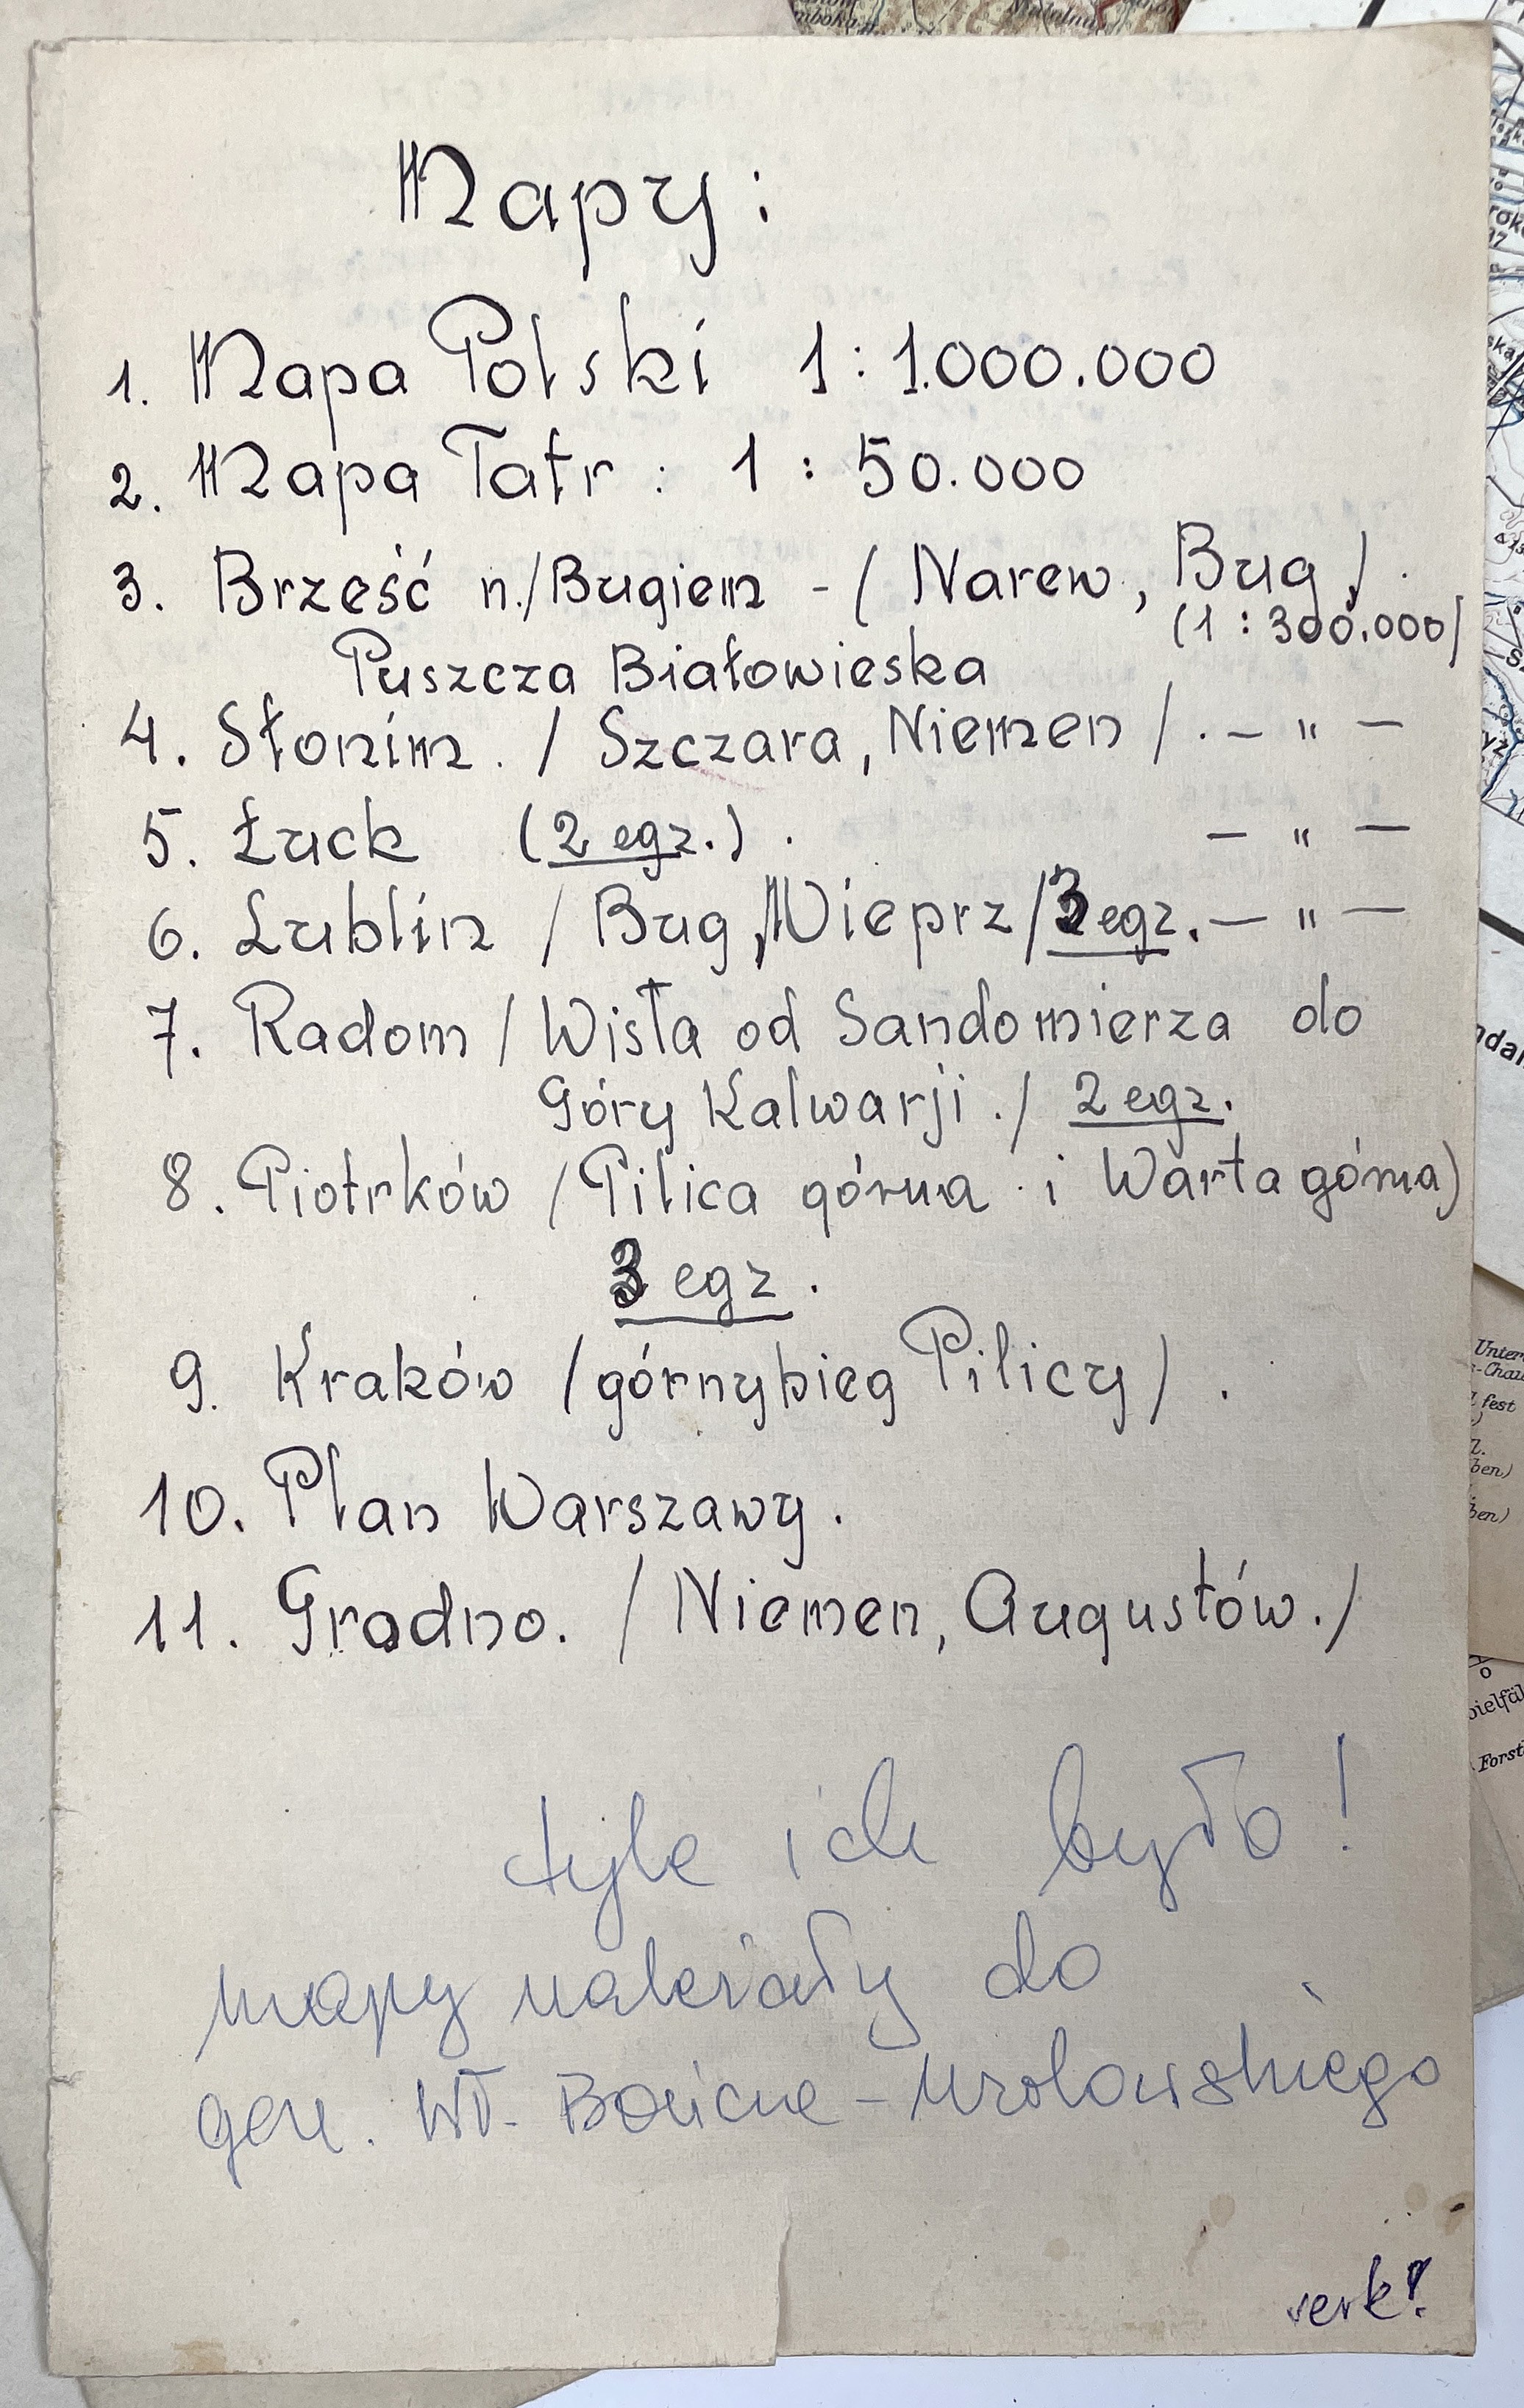 Mapy:
1. Mapa Polski 1:1.000.000
2. Mapa Tatr: 1 : 50.000
3. Brześć n./Bugiem - ( Narew, Bug /.
(1 : 300.000/
Puszcza Białowieska
4. Słonim. / Szczara, Niemen / . — " —
5. Łuck (2 egz.). — " —
6. Lublin / Bug, Wieprz / 3 egz. — " —
7. Radom / Wisła od Sandomierza do
Góry Kalwarji ./ 2 egz.
8. Piotrków / Pilica górna i Warta górna)
3 egz.
9. Kraków / górny bieg Pilicy / .
10. Plan Warszawy.
11. Grodno. / Niemen, Augustów./
tyle ich było!
mapy należały do
gen. Wł. Bończa-Uzdowskiego